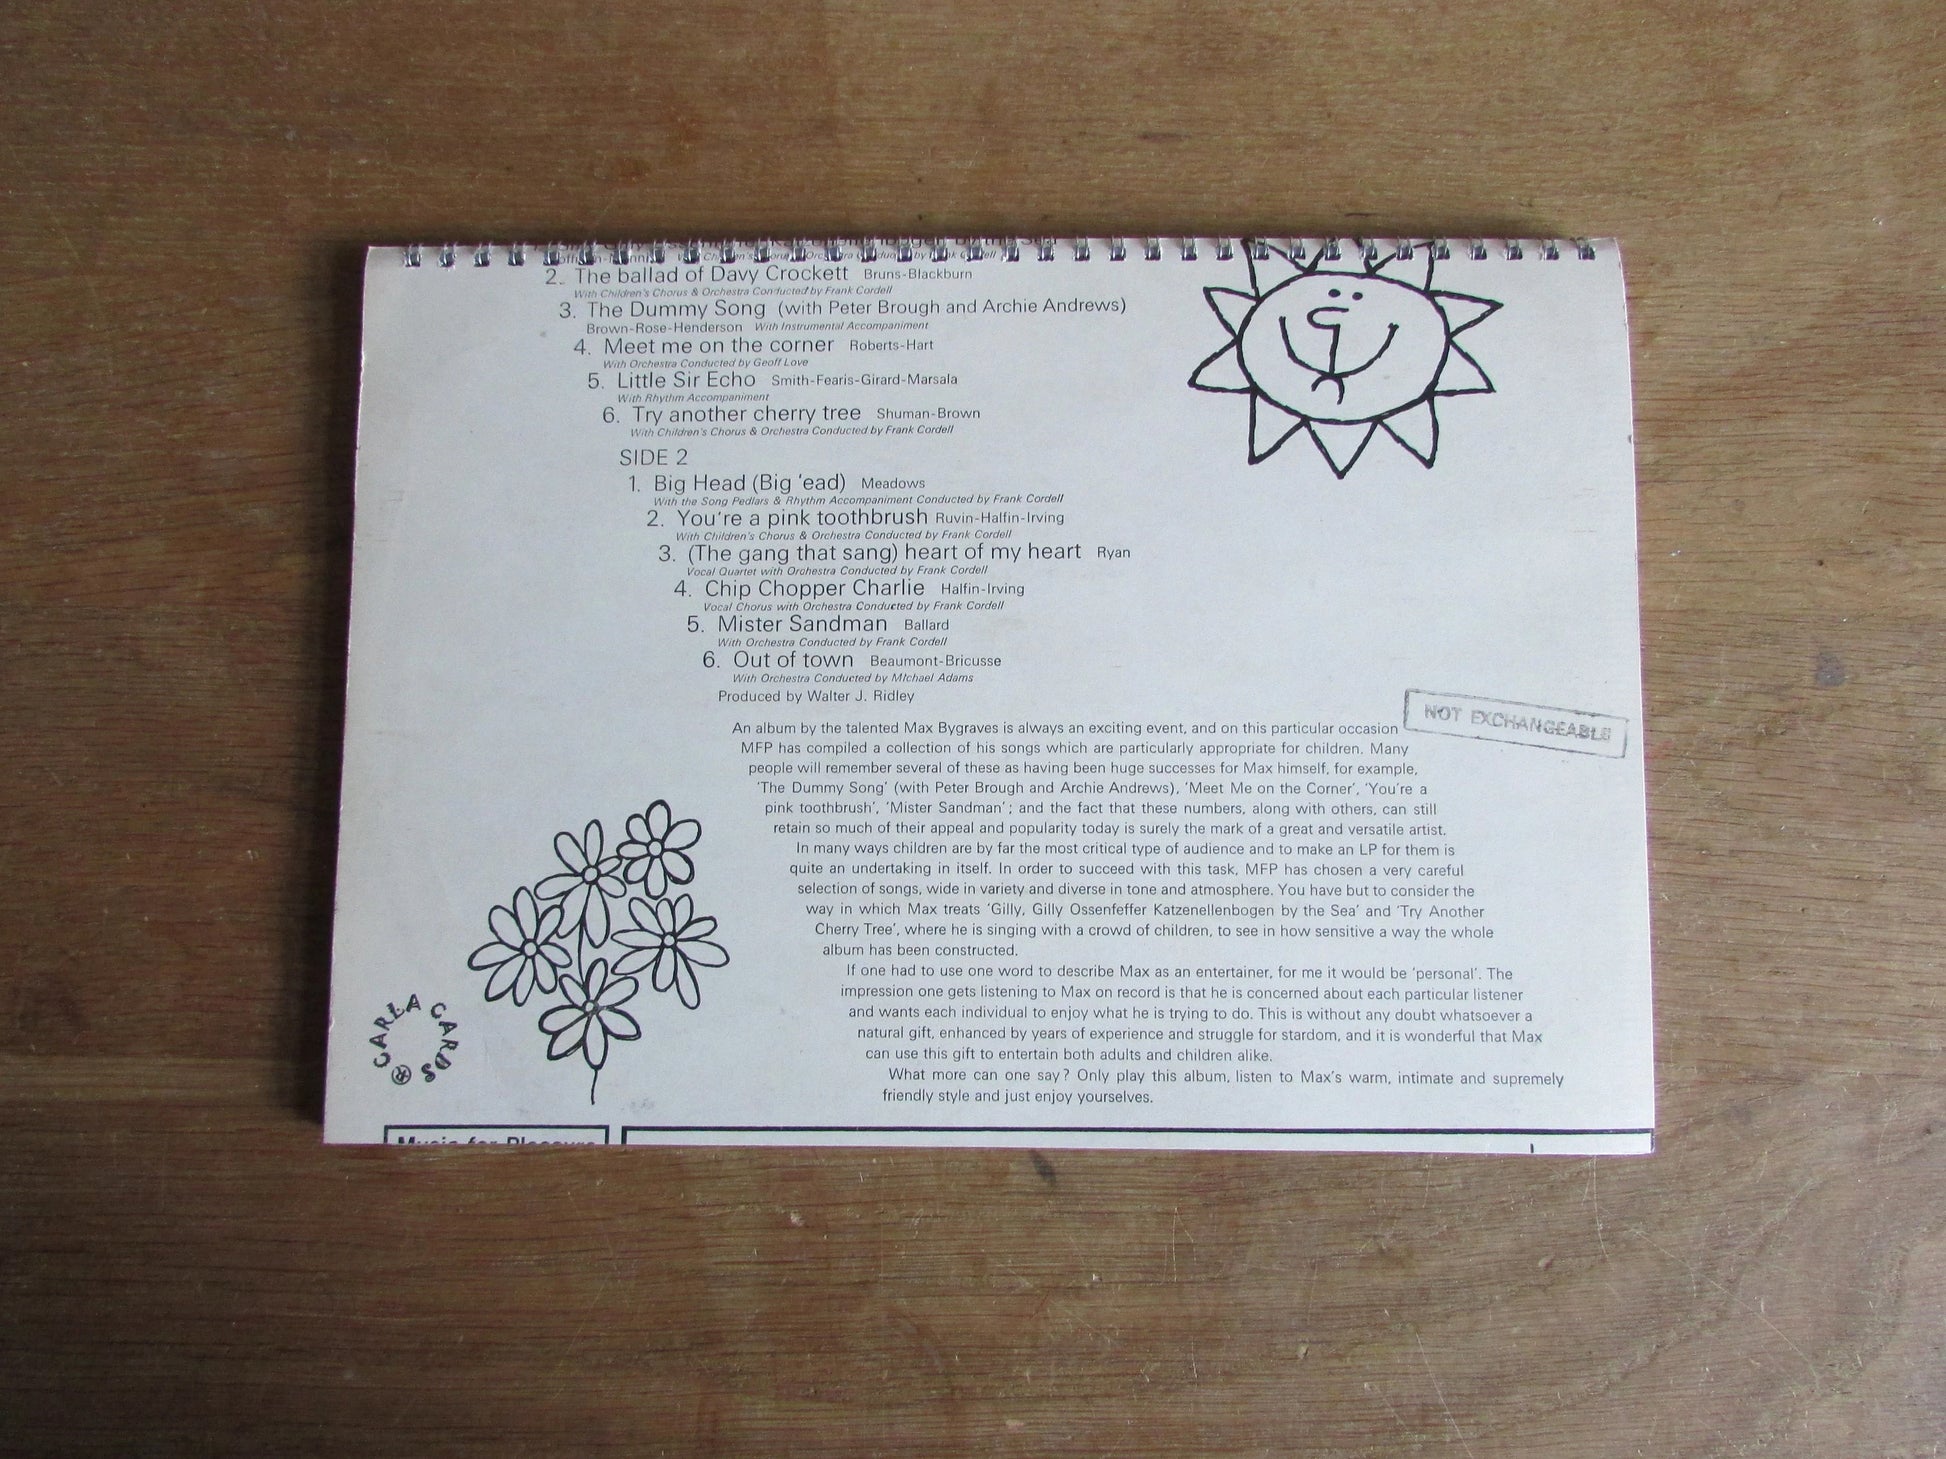 2. The ballad of Davy Crockett Bruns-Blackburn
With Children's Chorus & Orchestra Conducted by Frank Cordell
3. The Dummy Song (with Peter Brough and Archie Andrews)
Brown-Rose-Henderson With Instrumental Accompaniment
4. Meet me on the corner Roberts-Hart
With Orchestra Conducted by Geoff Love
5. Little Sir Echo Smith-Fearis-Girard-Marsala
With Rhythm Accompaniment
6. Try another cherry tree Shuman-Brown
With Children's Chorus & Orchestra Conducted by Frank Cordell
SIDE 2
1. Big Head (Big 'ead) Meadows
With the Song Pedlars & Rhythm Accompaniment Conducted by Frank Cordell
2. You're a pink toothbrush Ruvin-Halfin-Irving
With Children's Chorus & Orchestra Conducted by Frank Cordell
3. (The gang that sang) heart of my heart Ryan
Vocal Quartet with Orchestra Conducted by Frank Cordell
4. Chip Chopper Charlie Halfin-Irving
Vocal Chorus with Orchestra Conducted by Frank Cordell
5. Mister Sandman Ballard
With Orchestra Conducted by Frank Cordell
6. Out of town Beaumont-Bricusse
With Orchestra Conducted by Michael Adams
Produced by Walter J. Ridley
NOT EXCHANGEABLE
An album by the talented Max Bygraves is always an exciting event, and on this particular occasion
MFP has compiled a collection of his songs which are particularly appropriate for children. Many
people will remember several of these as having been huge successes for Max himself, for example,
'The Dummy Song' (with Peter Brough and Archie Andrews), 'Meet Me on the Corner', 'You're a
pink toothbrush', 'Mister Sandman'; and the fact that these numbers, along with others, can still
retain so much of their appeal and popularity today is surely the mark of a great and versatile artist.
In many ways children are by far the most critical type of audience and to make an LP for them is
quite an undertaking in itself. In order to succeed with this task, MFP has chosen a very careful
selection of songs, wide in variety and diverse in tone and atmosphere. You have but to consider the
way in which Max treats 'Gilly, Gilly Ossenfeffer Katzenellenbogen by the Sea' and 'Try Another
Cherry Tree', where he is singing with a crowd of children, to see in how sensitive a way the whole
album has been constructed.
If one had to use one word to describe Max as an entertainer, for me it would be 'personal'. The
impression one gets listening to Max on record is that he is concerned about each particular listener
and wants each individual to enjoy what he is trying to do. This is without any doubt whatsoever a
natural gift, enhanced by years of experience and struggle for stardom, and it is wonderful that Max
can use this gift to entertain both adults and children alike.
What more can one say? Only play this album, listen to Max's warm, intimate and supremely
friendly style and just enjoy yourselves.
® CARLA CARDS
Music for Pleasure